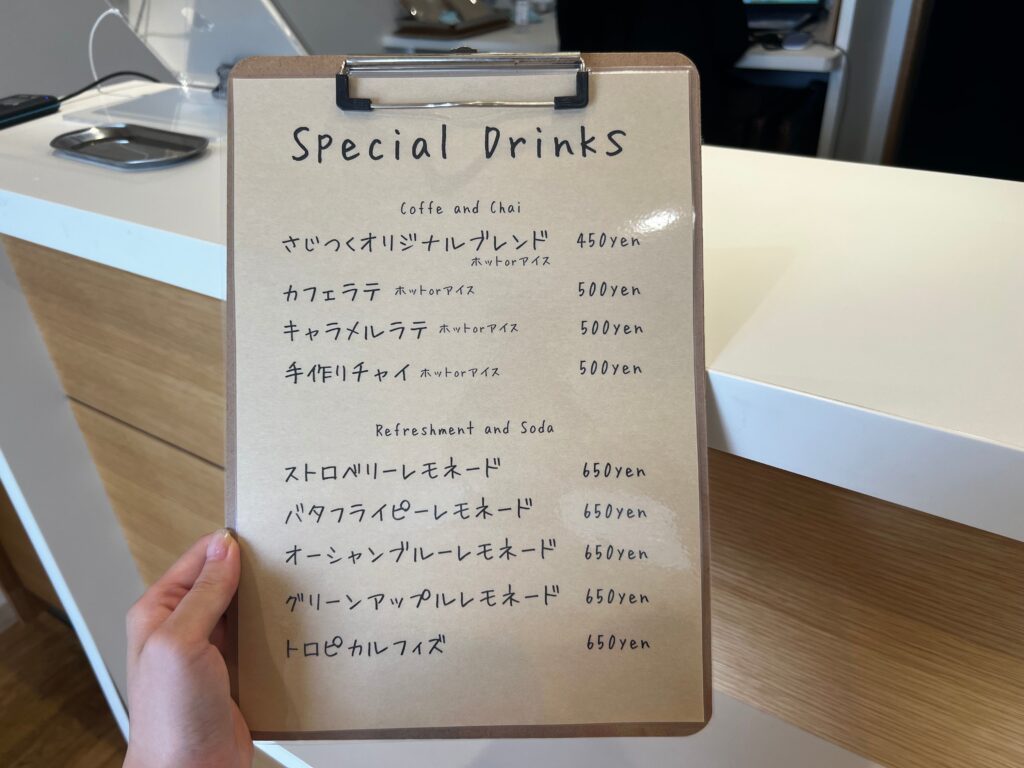 Special Drinks
Coffe and Chai
さじつくオリジナルブレンド 450yen
ホットorアイス
カフェラテ ホットorアイス 500yen
キャラメルラテ ホットorアイス 500yen
手作りチャイ ホットorアイス 500yen
Refreshment and Soda
ストロベリーレモネード 650yen
バタフライピーレモネード 650yen
オーシャンブルーレモネード 650yen
グリーンアップルレモネード 650yen
トロピカルフィズ 650yen